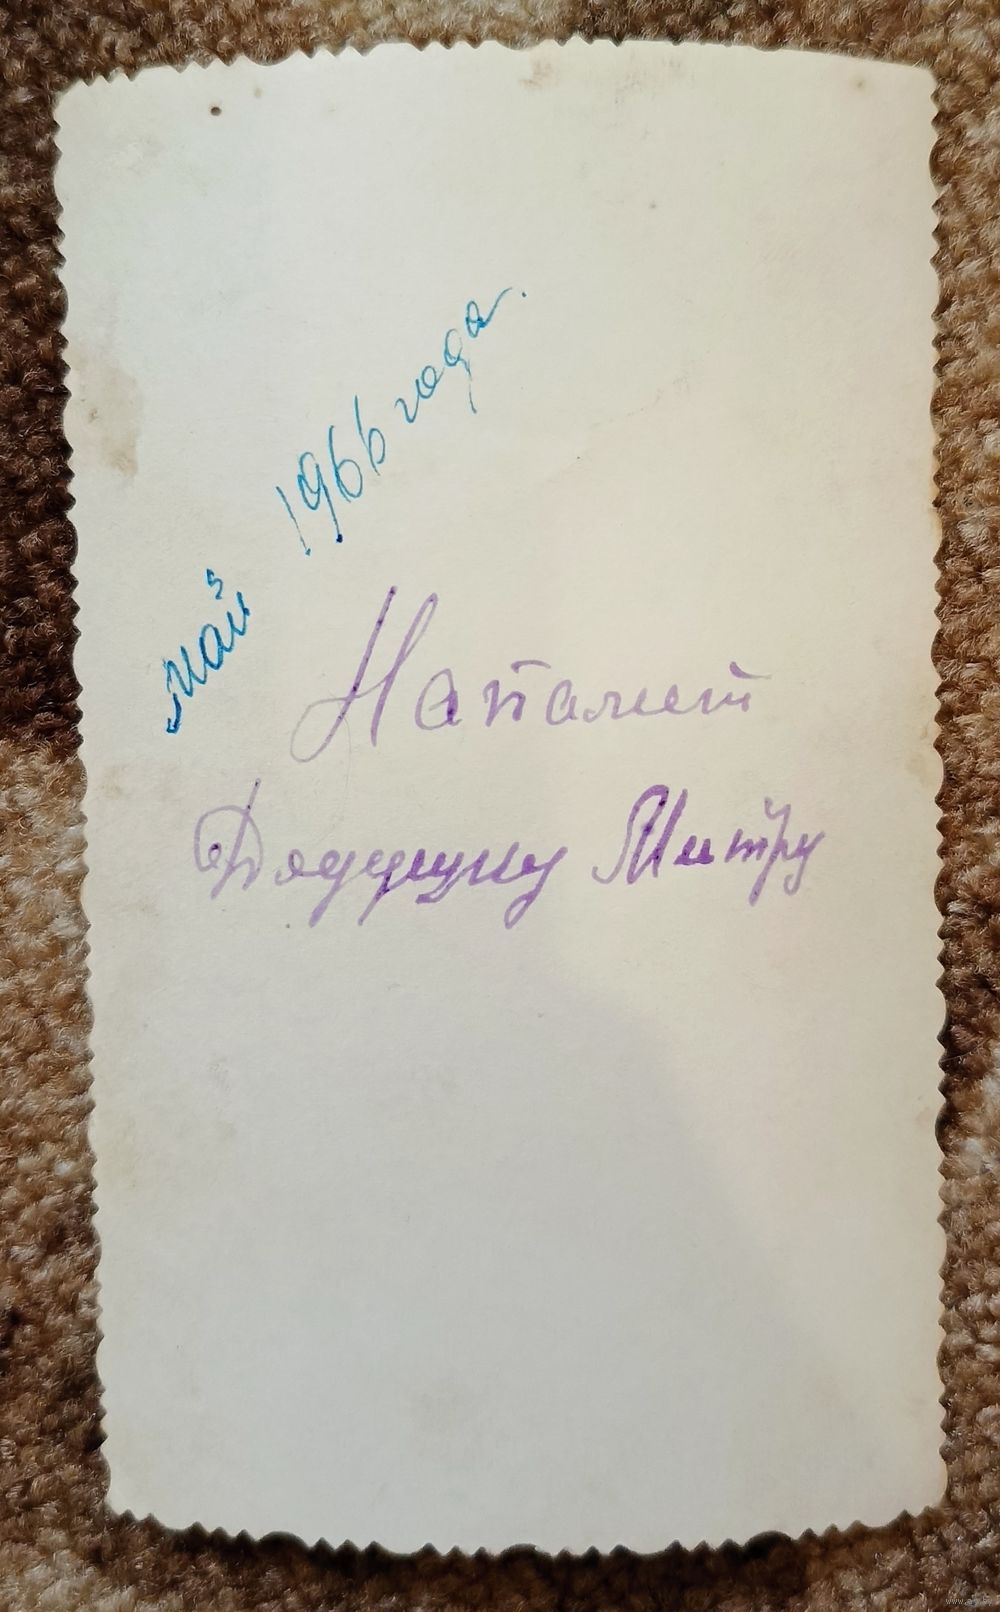 май 1966 года.
Напамет
Дедушку Митру